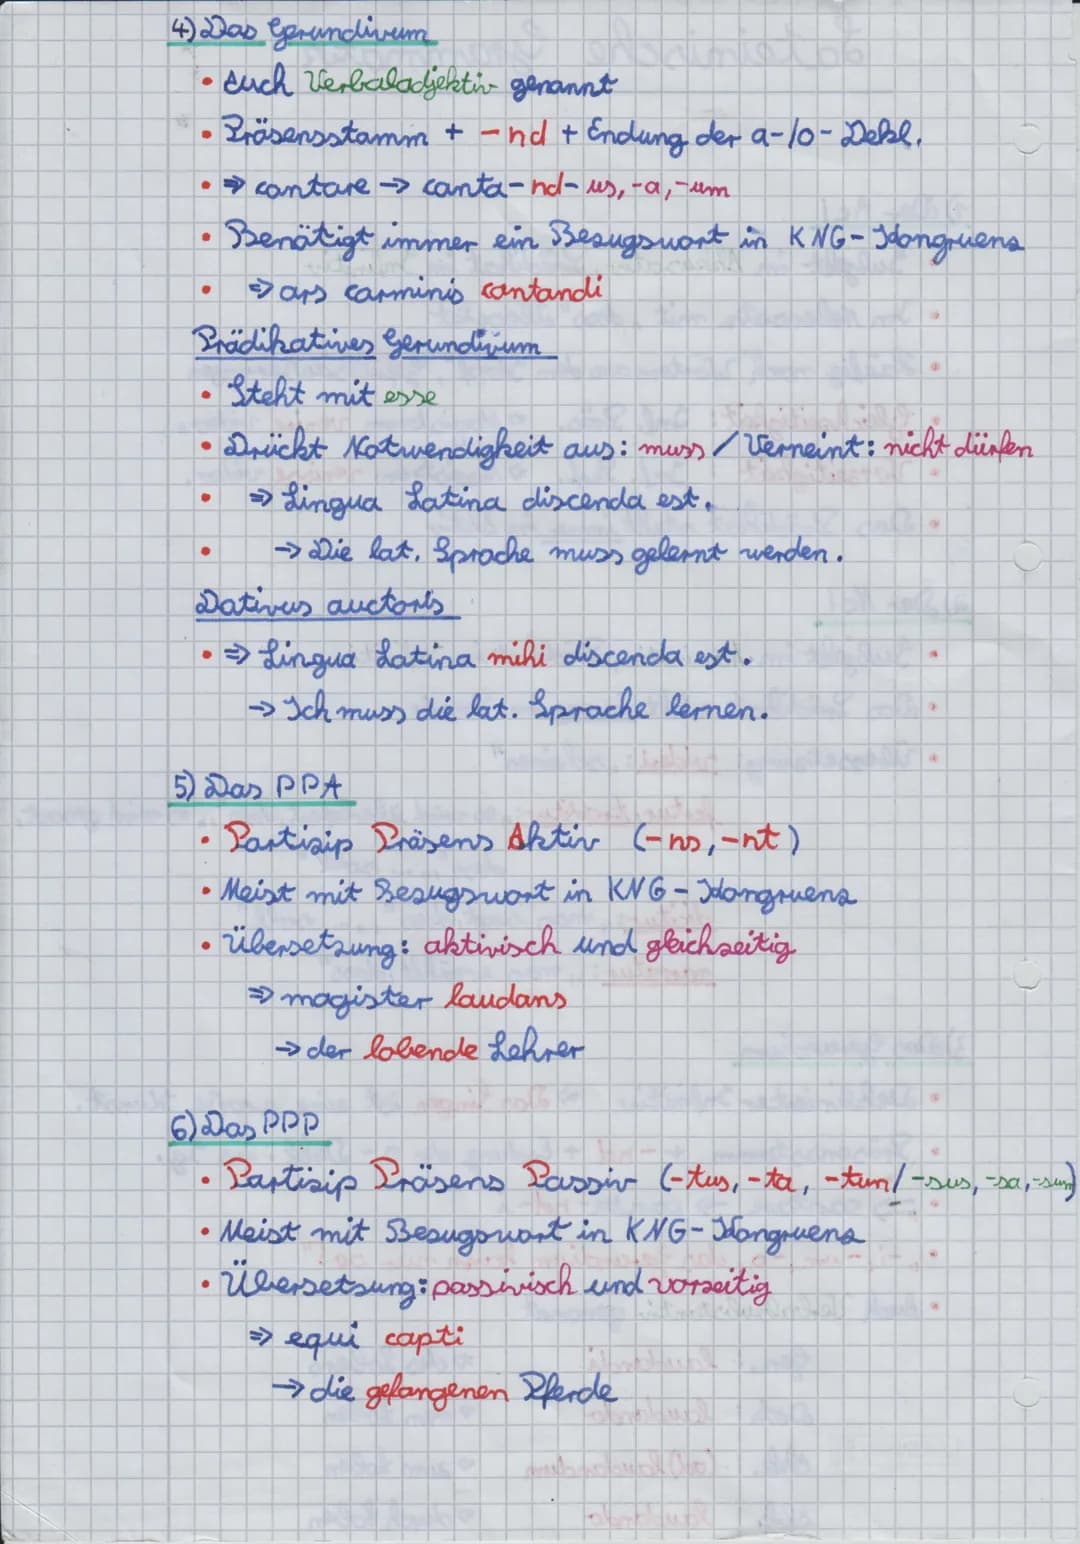 4) Das Gerundivum
• Auch Verbaladjektiv genannt
• Präsensstamm + -nd + Endung der a-/o-Dekl.
• ⇒ cantare → canta-nd-us, -a, -um
• Benötigt immer ein Bezugswort in KNG-Kongruenz
• ⇒ ars carminis cantandi
Prädikatives Gerundivum
• Steht mit esse
• Drückt Notwendigkeit aus: muss / Verneint: nicht dürfen
• ⇒ Lingua Latina discenda est.
• → Die lat. Sprache muss gelernt werden.
Dativus auctoris
• ⇒ Lingua Latina mihi discenda est.
→ Ich muss die lat. Sprache lernen.
5) Das PPA
• Partizip Präsens Aktiv (-ns, -nt)
• Meist mit Bezugswort in KNG-Kongruenz
• Übersetzung: aktivisch und gleichzeitig
⇒ magister laudans
→ der lobende Lehrer
6) Das PPP
• Partizip Präsens Passiv (-tus, -ta, -tum/-sus, -sa, -sum)
• Meist mit Bezugswort in KNG-Kongruenz
• Übersetzung: passivisch und vorzeitig
⇒ equi capti
→ die gefangenen Pferde